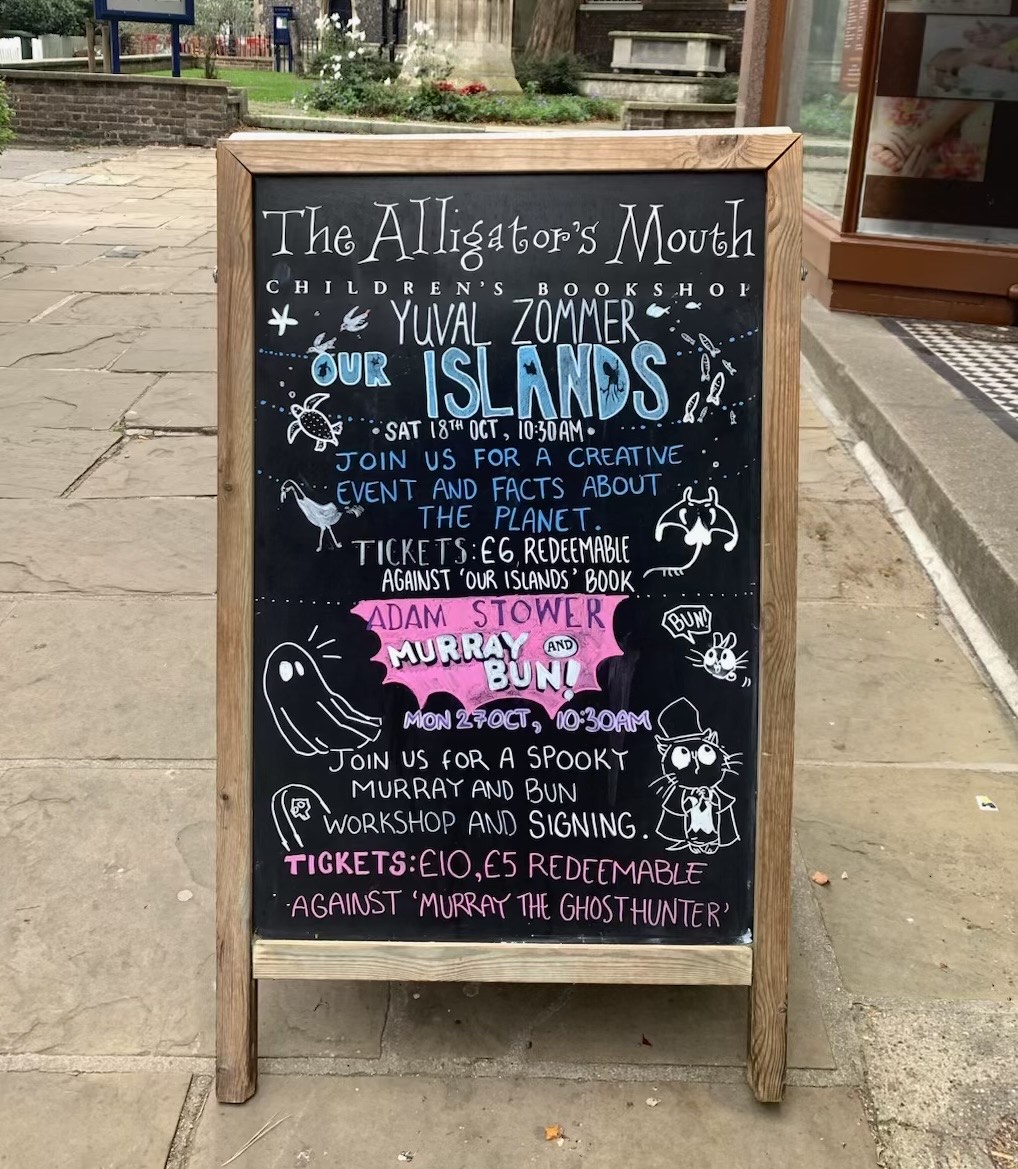 The Alligator's Mouth
CHILDREN'S BOOKSHOP
YUVAL ZOMMER
OUR ISLANDS
SAT 18TH OCT, 10:30AM
JOIN US FOR A CREATIVE
EVENT AND FACTS ABOUT
THE PLANET.
TICKETS: £6, REDEEMABLE
AGAINST 'OUR ISLANDS' BOOK
ADAM STOWER
MURRAY AND
BUN!
BUN!
MON 27OCT, 10:30AM
JOIN US FOR A SPOOKY
MURRAY AND BUN
WORKSHOP AND SIGNING.
TICKETS: £10, £5 REDEEMABLE
AGAINST 'MURRAY THE GHOSTHUNTER'